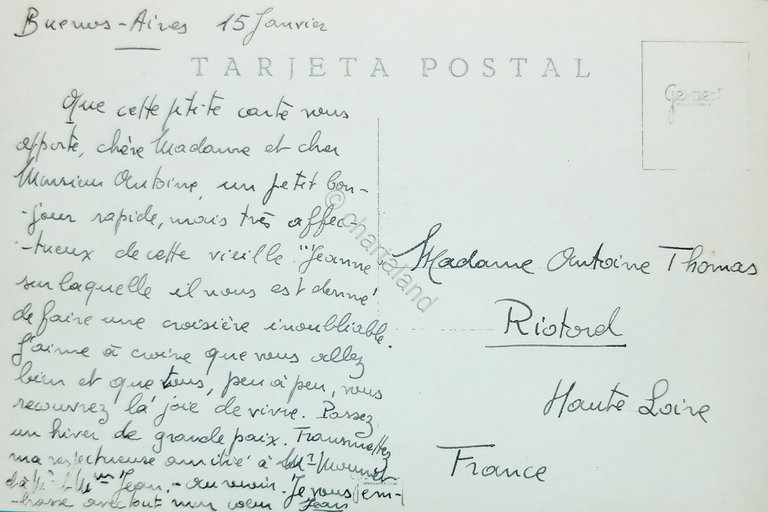 Buenos-Aires 15 Janvier
TARJETA POSTAL
Que cette ptite carte vous
apporte, chère Madame et cher
Monsieur Antoine, un petit bon-
-jour rapide, mais très affec-
-tueux de cette vieille "Jeanne"
sur laquelle il nous est donné
de faire une croisière inoubliable.
J'aime à croire que vous allez
bien et que tous, peu à peu, vous
recouvrez la joie de vivre. Passez
un hiver de grande paix. Transmettez
ma respectueuse amitié à Mr
et à Mr & Mme Jean. - au revoir. Je vous em-
-brasse avec tout mon coeur Jean
Gevaert
Madame Antoine Thomas
Riotord
Haute Loire
France
© chartaland